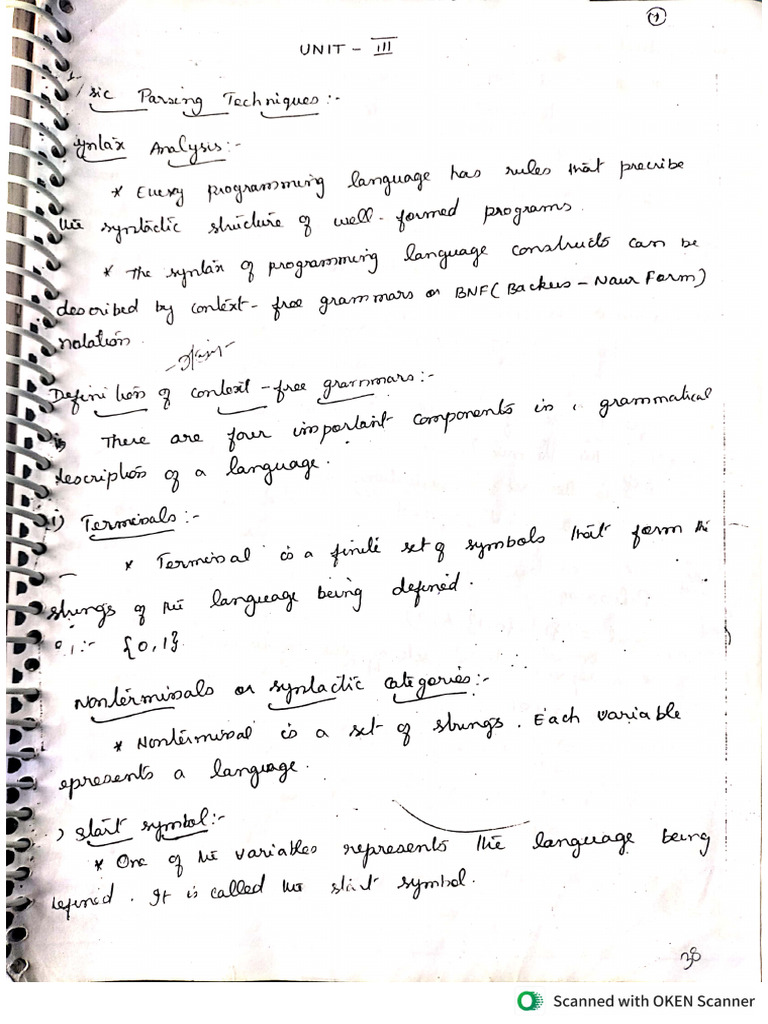 1
UNIT - III
sic Parsing Techniques:-
yntax Analysis:-
* Every programming language has rules that precribe
the syntactic structure of well-formed programs.
* The syntax of programming language constructs can be
described by context-free grammars or BNF (Backus-Naur Form)
notation.
Definition of context-free grammars:-
There are four important components in grammatical
description of a language.
i) Terminals:-
* Terminal is a finite set of symbols that form the
strings of the language being defined.
{0,1}
Nonterminals or syntactic categories:-
* Nonterminal is a set of strings. Each variable
epresents a language.
) start symbol:-
* One of the variables represents the language being
defined. It is called the start symbol.
38
Scanned with OKEN Scanner